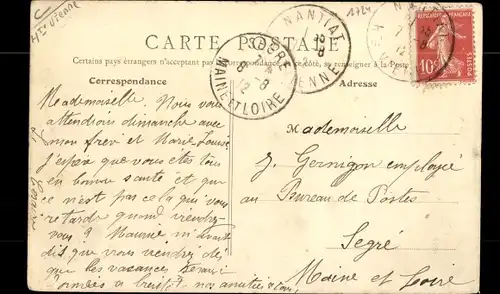 Hte Vienne
1724
CARTE POSTALE
Certains pays étrangers n'acceptant pas se renseigner à la Poste
Correspondance
Adresse
NANTIAT
8
12
VIENNE
SEGRÉ
8 -8
12
MAINE ET LOIRE
RÉPUBLIQUE FRANÇAISE
POSTES
10c
Mademoiselle. Nous vous
attendrons dimanche avec
mon frère et Marie Louise
J'espère que vous êtes tous
en bonne santé et que
ce n'est pas cela qui vous
retarde quand viendrez-
vous ? m'avait
dit que vous viendrez dès
que les vacances seraient
nos amitiés à tous
Mademoiselle
J. Gernigon employée
au Bureau de Postes
Segré
Maine et Loire